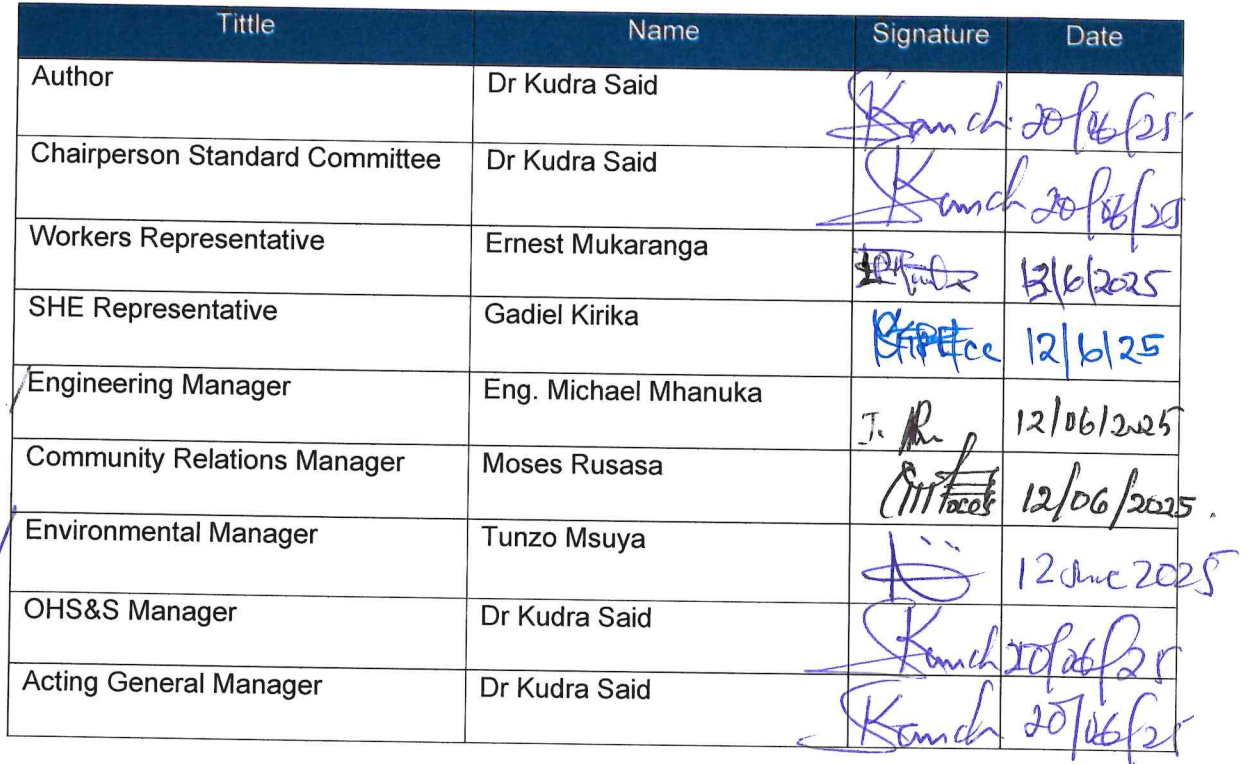 Tittle Name Signature Date
Author Dr Kudra Said 20/06/25
Chairperson Standard Committee Dr Kudra Said 20/06/25
Workers Representative Ernest Mukaranga 13/6/2025
SHE Representative Gadiel Kirika 12/6/25
Engineering Manager Eng. Michael Mhanuka 12/06/2025
Community Relations Manager Moses Rusasa 12/06/2025.
Environmental Manager Tunzo Msuya 12 June 2025
OHS&S Manager Dr Kudra Said 20/06/25
Acting General Manager Dr Kudra Said 20/06/25